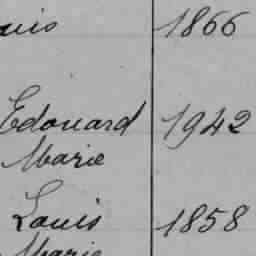 uis 1866
Edouard 1942
Marie
Louis 1858
Marie